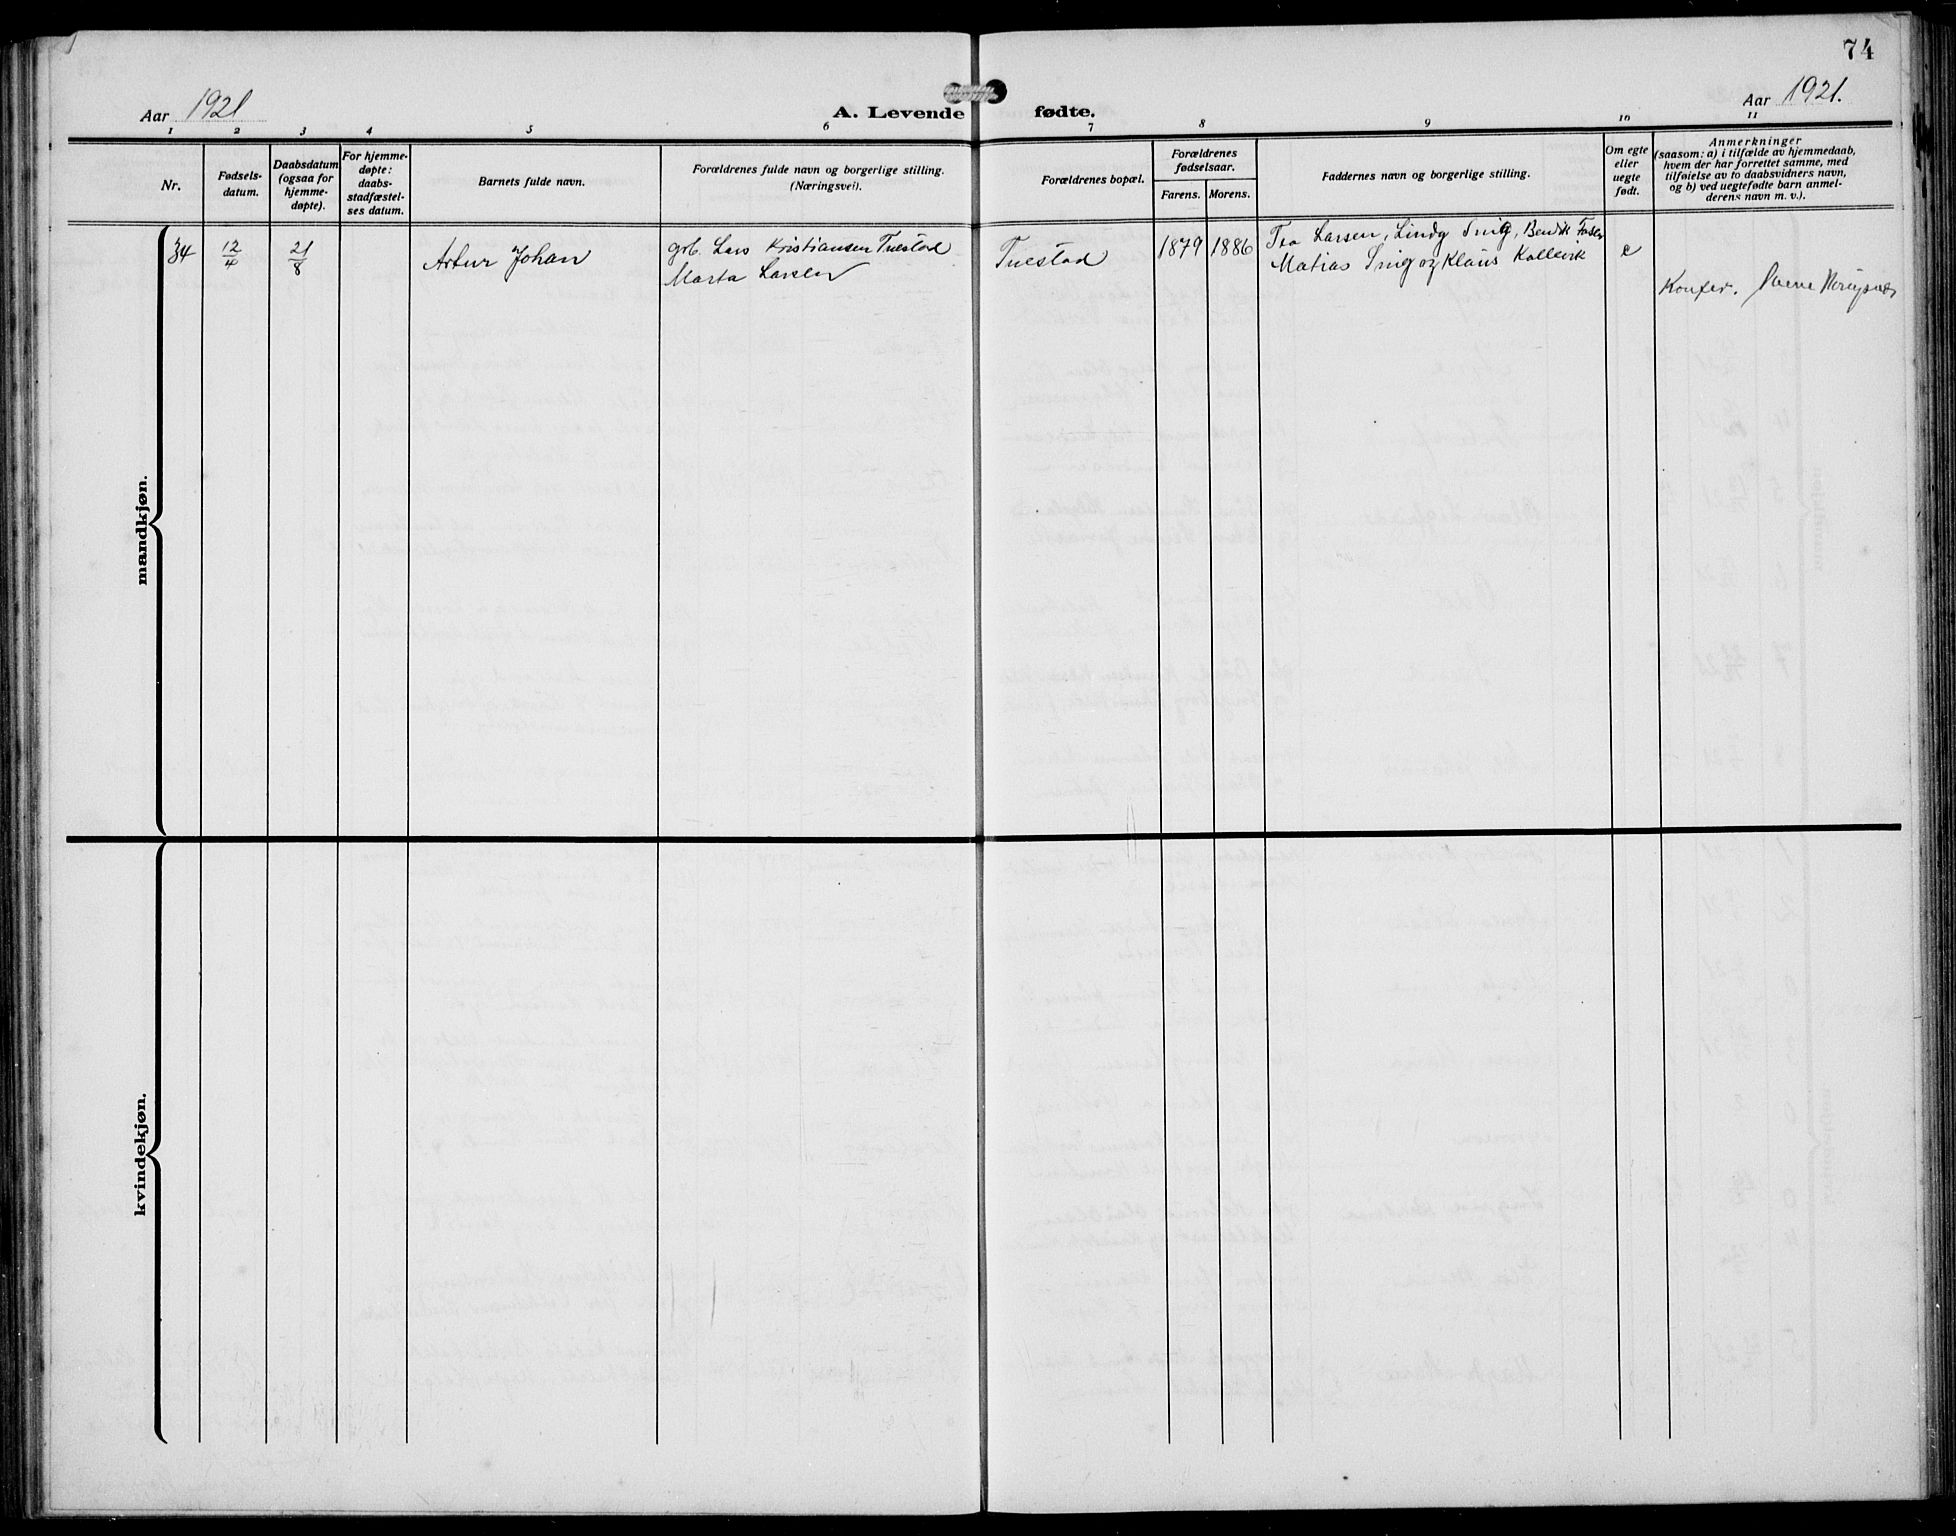 74
Aar 1921
A. Levende fødte.
Aar 1921.
1 2 3 4 5 6 7 8 9 10 11
Nr.
Fødsels-
datum.
Daabsdatum
(ogsaa for
hjemme-
døpte).
For hjemme-
døpte:
daabs-
stadfæstel-
ses datum.
Barnets fulde navn.
Forældrenes fulde navn og borgerlige stilling.
(Næringsvei).
Forældrenes bopæl.
Forældrenes
fødselsaar.
Farens. Morens.
Faddernes navn og borgerlige stilling.
Om egte
eller
uegte
født.
Anmerkninger
(saasom: a) i tilfælde av hjemmedaab,
hvem der har forrettet samme, med
tilføielse av to daabsvidners navn,
og b) ved uegtefødte barn anmel-
derens navn m. v.).
mandkjøn.
34 12/4 21/8 Artur Johan
grb. Lars Kristiansen Tuestad
Marta Larsen
Tuestad 1879 1886
Tea Larsen, Lindy Snig, Bendik
Matias Snig og Klaus Kallevik
e
Konfer.
kvindekjøn.